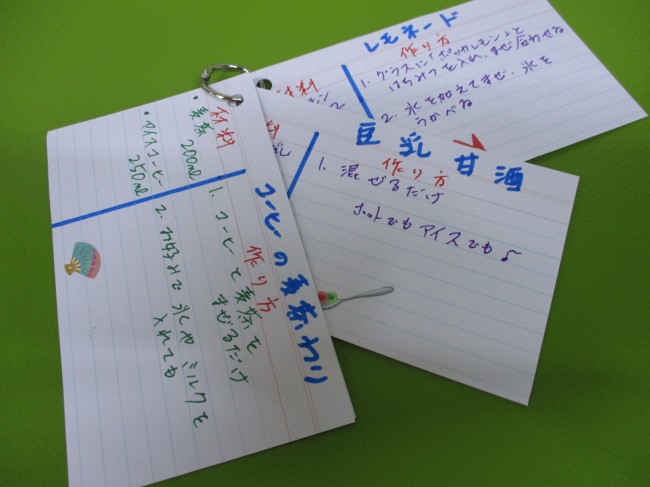 レモネード
作り方
1. グラスに「ポッカレモン」と
はちみつを入れ、まぜ合わせる
2. 氷を加えてまぜ、氷を
うかべる
材料
豆乳甘酒
作り方
1. 混ぜるだけ
ホットでもアイスでも♪
コーヒーの麦茶わり
材料
・麦茶
200ml
・アイスコーヒー
250ml
作り方
1. コーヒーと麦茶を
まぜるだけ
2. お好みで氷やミルクを
入れても